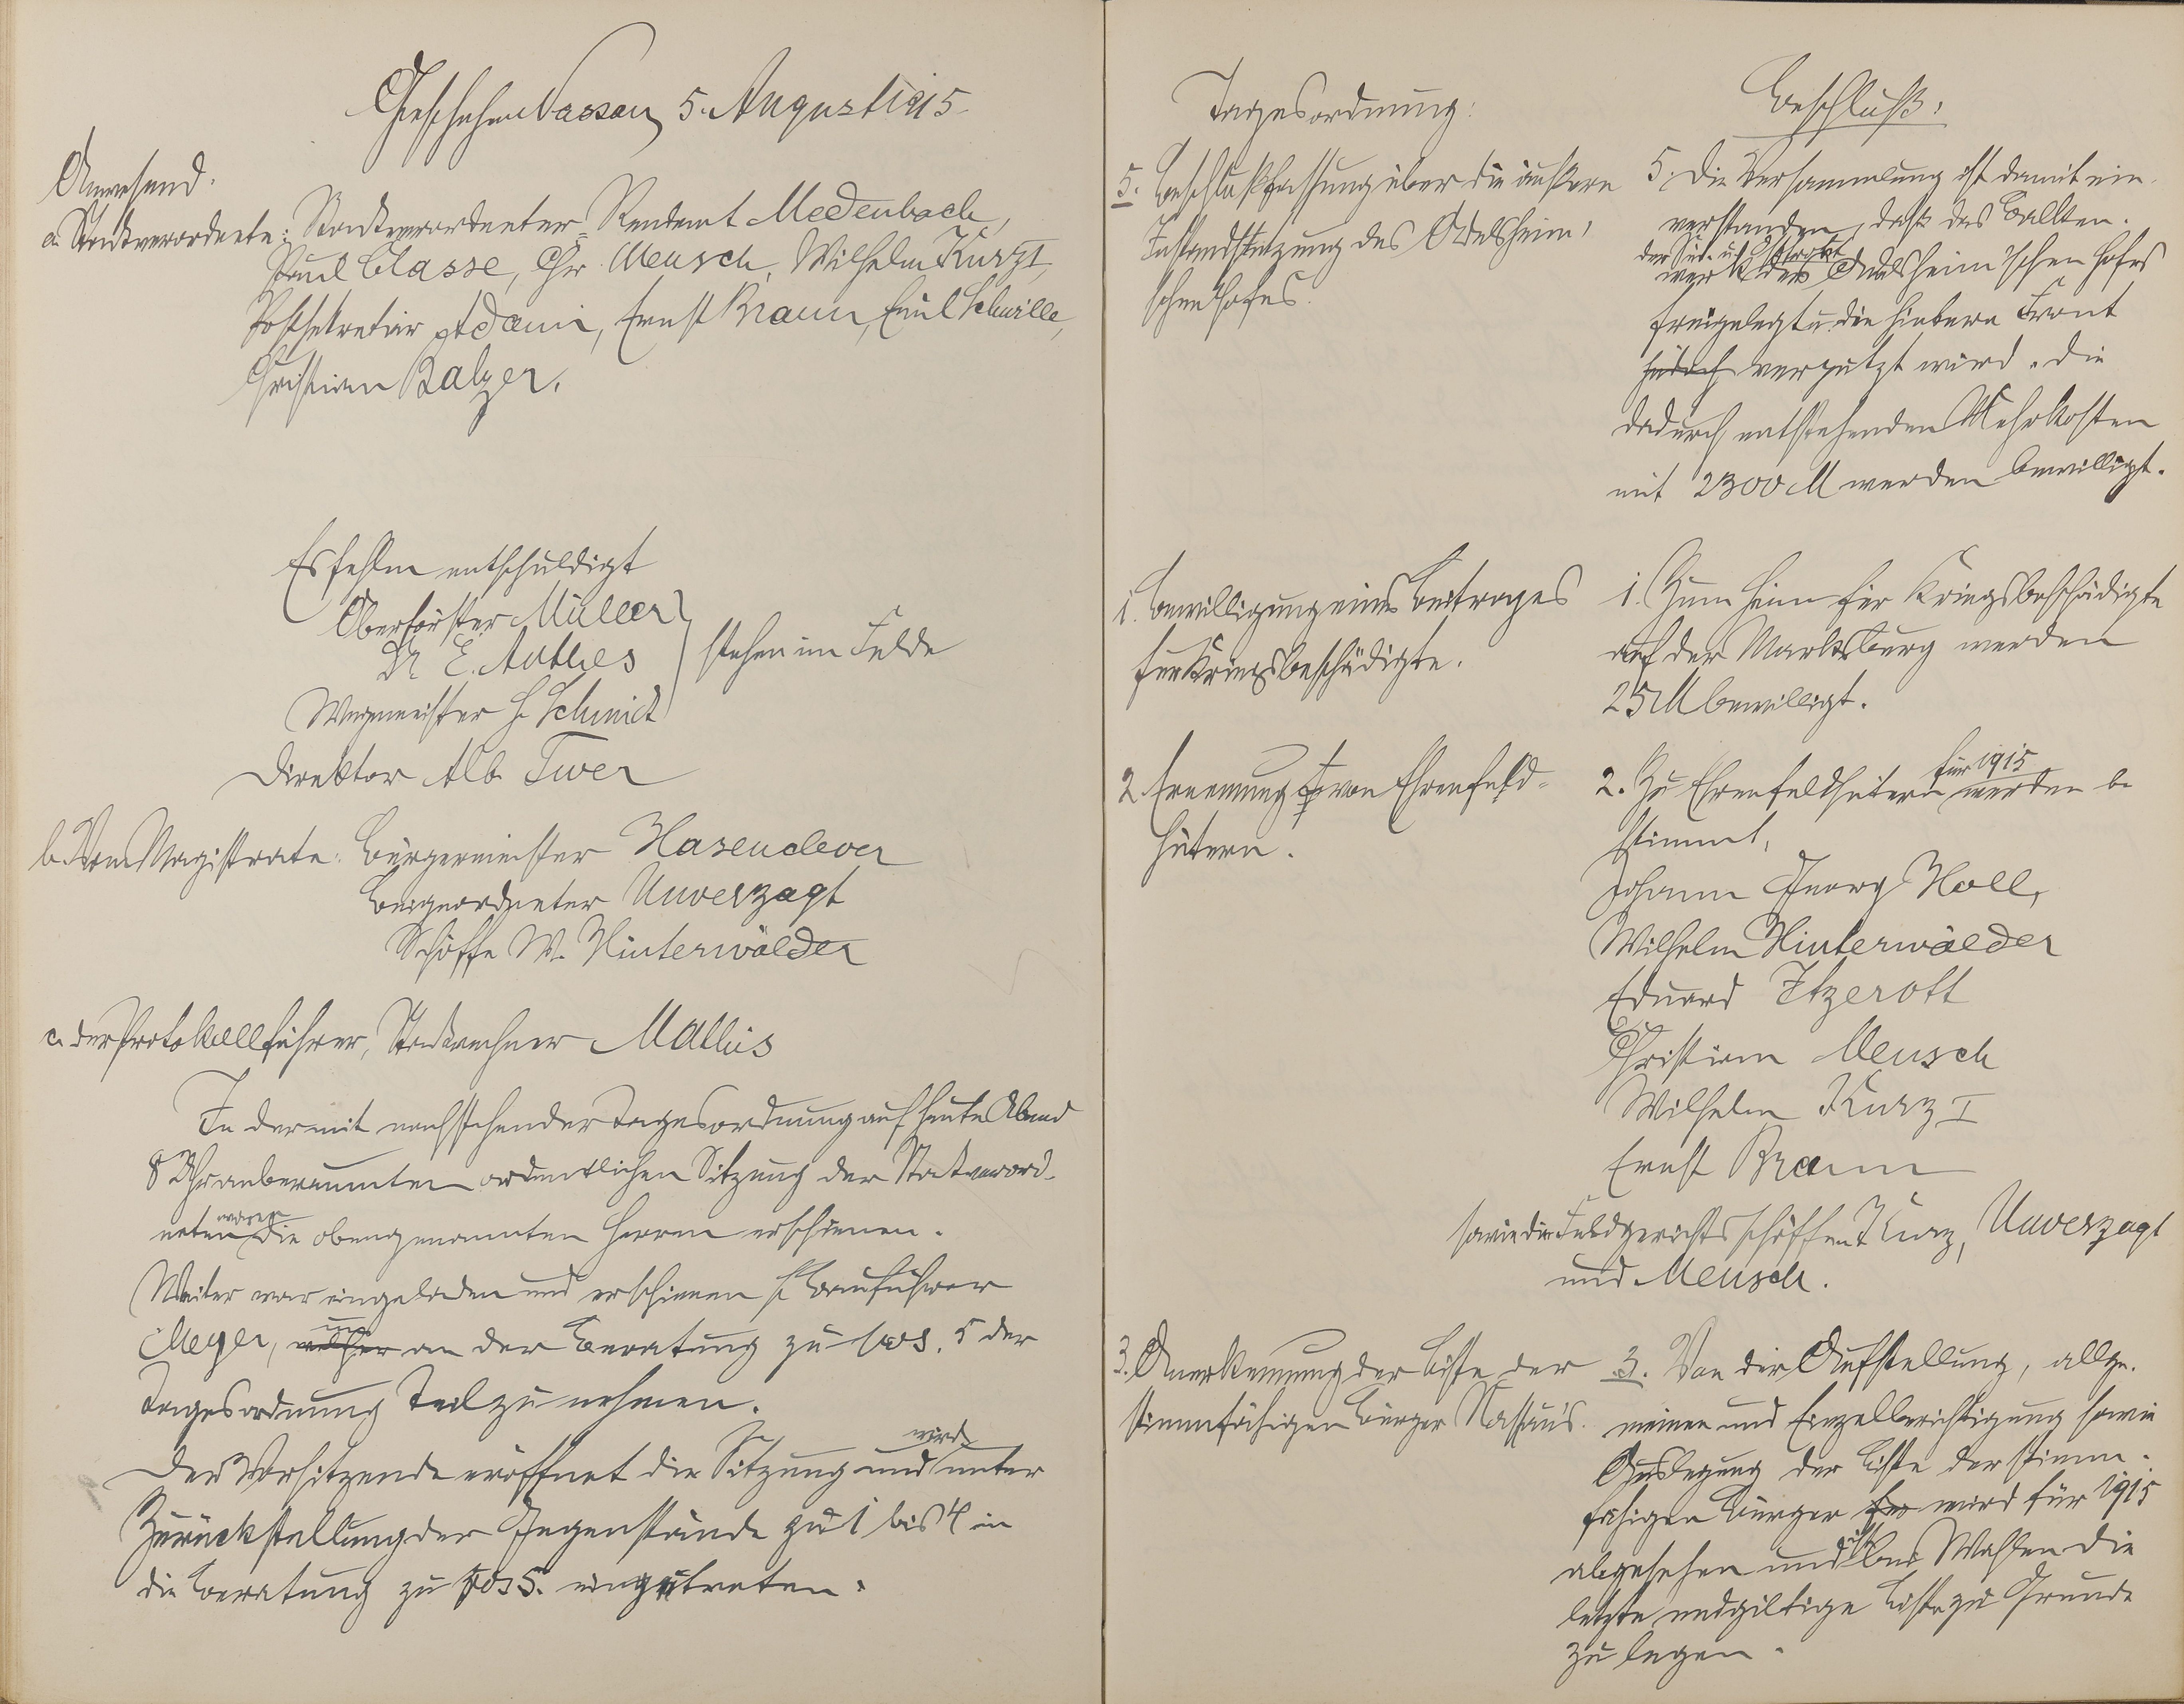 Geschehen Nassau, 5. August 1915.
Anwesend:
a. Stadtverordnete: Stadtverordneter = Rendant Medenbach,
Paul Classe, Chr. Meusch, Wilhelm Kurz I,
Postsekretär Adami, Ernst Braun, Emil Schwille,
Christian Balzer.
Es fehlen entschuldigt
Oberförster Müller
Dr E. Anthes
stehen im Felde
Wegemeister H. Schmidt
Direktor Alb. Twer
b. Vom Magistrate: Bürgermeister Hasenclever
Beigeordneter Unverzagt
Schöffe W. Hinterwälder
c. der Protokollführer, Stadtrechner Mathis
In der mit nachstehender Tagesordnung auf heute Abend
8 Uhr anberaumten ordentlichen Sitzung der Stadtverord-
neten waren die obengenannten Herren erschienen.
Weiter war eingeladen und erschienen H. Bauführer
Meyer, welcher um an der Beratung zu pos. 5 der
Tagesordnung Teil zu nehmen.
Der Vorsitzende eröffnet die Sitzung und wird unter
Zurückstellung der Gegenstände zu 1 bis 4 in
die Beratung zu pos 5. einzutreten.
Tagesordnung:
Beschluß:
5. Beschlußfassung über die äußere
Instandsetzung des Adelsheim'
schen Hofes.
5. Die Versammlung ist damit ein-
verstanden, daß das Balken-
der Süd- u. Ostfront
werk des Adelsheim'schen Hofes
freigelegt u. die hintere Front
jedoch verputzt wird. Die
dadurch entstehenden Mehrkosten
mit 2300 M werden bewilligt.
1. Bewilligung eines Beitrages
für Kriegsbeschädigte.
1. Zum Heim für Kriegsbeschädigte
auf der Marksburg werden
25 M bewilligt.
2. Ernennung von Ehrenfeld-
hütern.
2. Zu Ehrenfeldhütern für 1915 werden be
stimmt,
Johann Georg Holl,
Wilhelm Hinterwälder
Eduard Itzerott
Christian Meusch
Wilhelm Kurz I
Ernst Braun
sowie die Feldgerichtsschöffen Kurz, Unverzagt
und Meusch.
3. Anerkennung der Liste der
stimmfähigen Bürger Nassau's.
3. Von der Aufstellung, allge-
meinen und Einzelberichtigung sowie
Auslegung der Liste der stimm-
fähigen Bürger wird für 1915
abgesehen und ist bei Wahlen die
letzte endgiltige Liste zu Grunde
zu legen.